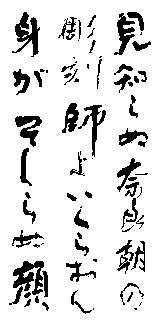 見知らぬ奈良朝の
彫刻師よいくらおん
身がそしらぬ顔